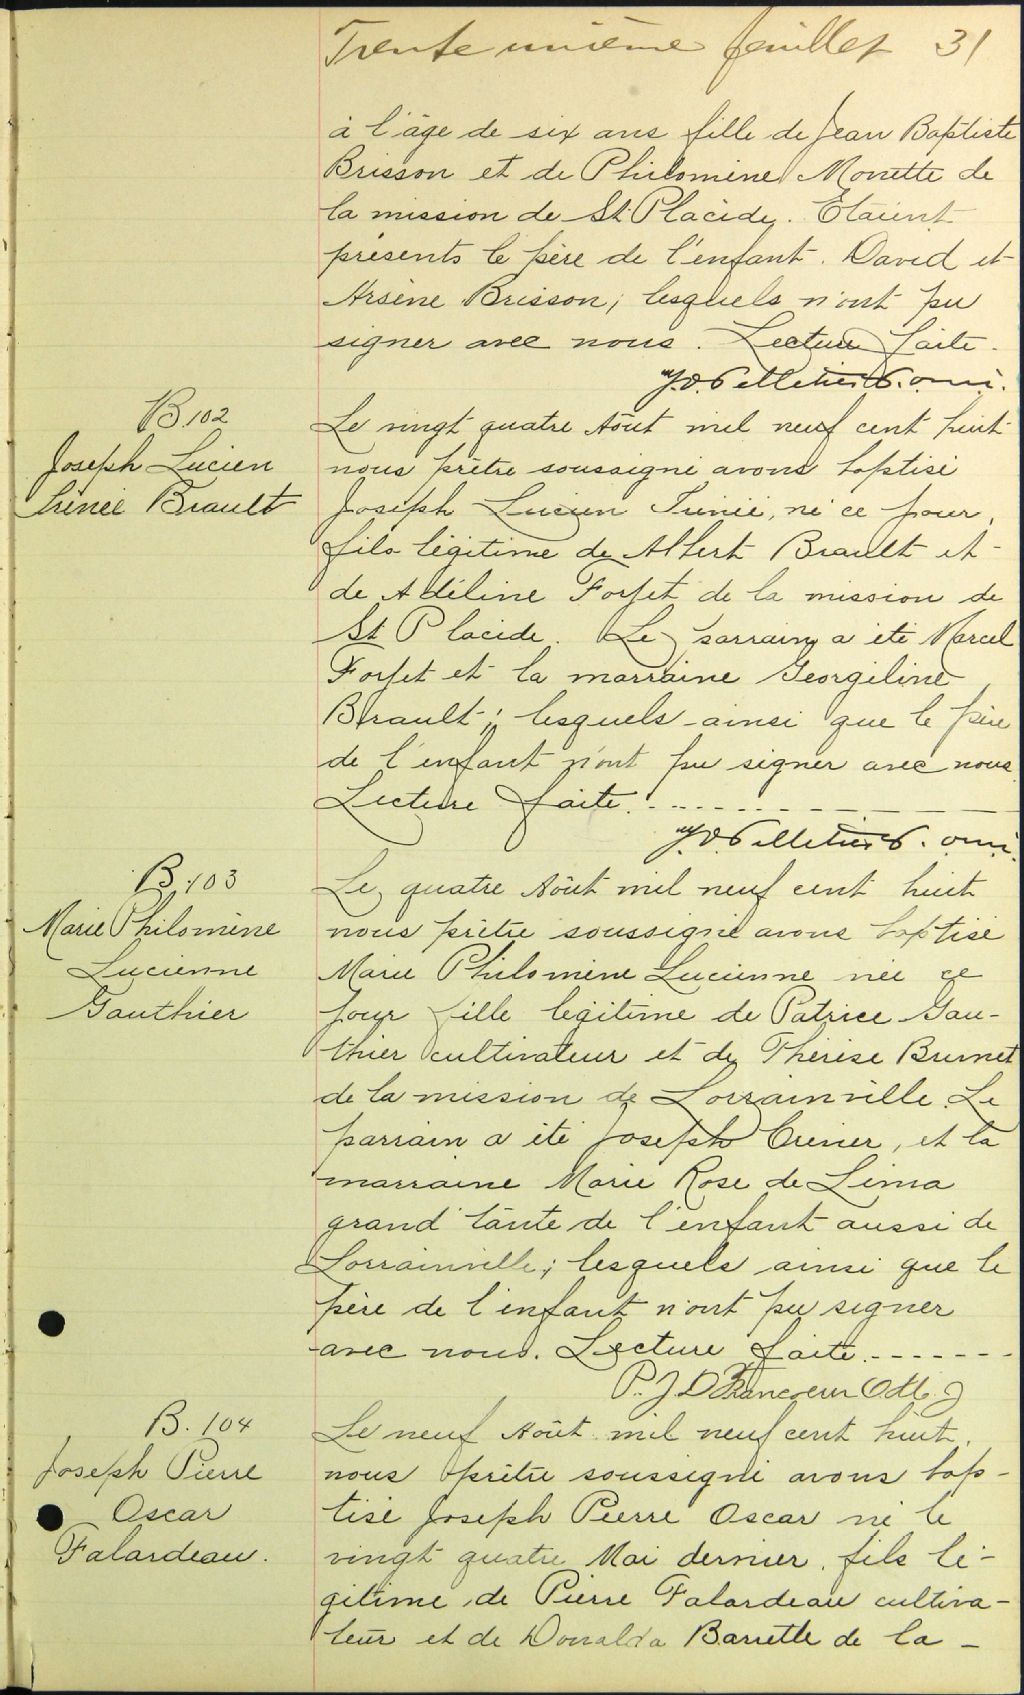 Trente unième feuillet 31
à l'âge de six ans fille de Jean Baptiste
Brisson et de Philomène Monette de
la mission de St Placide. Etaient
présents le père de l'enfant. David et
Arsène Brisson; lesquels n'ont pu
signer avec nous. Lecture faite.
J.D. Pelletier P. omi.
B.102
Joseph Lucien
Irénée Brault
Le vingt quatre Août mil neuf cent huit
nous prêtre soussigné avons baptisé
Joseph Lucien Irénée, né ce jour,
fils légitime de Albert Brault et
de Adéline Forget de la mission de
St Placide. Le parrain a été Marcel
Forget et la marraine Georgeline
Brault; lesquels ainsi que le père
de l'enfant n'ont pu signer avec nous.
Lecture faite.
J.D. Pelletier P. omi.
B.103
Marie Philomène
Lucienne
Gauthier
Le quatre Août mil neuf cent huit
nous prêtre soussigné avons baptisé
Marie Philomène Lucienne née ce
jour fille légitime de Patrice Gau-
thier cultivateur et de Thérèse Brunet
de la mission de Lorrainville. Le
parrain a été Joseph Crevier, et la
marraine Marie Rose de Lima
grand'tante de l'enfant aussi de
Lorrainville; lesquels ainsi que le
père de l'enfant n'ont pu signer
avec nous. Lecture faite.-------
P. J D Francoeur O.M.J
B. 104
Joseph Pierre
Oscar
Falardeau.
Le neuf Août mil neuf cent huit,
nous prêtre soussigné avons bap-
tisé Joseph Pierre Oscar né le
vingt quatre Mai dernier, fils lé-
gitime de Pierre Falardeau cultiva-
teur et de Donalda Barrette de la -